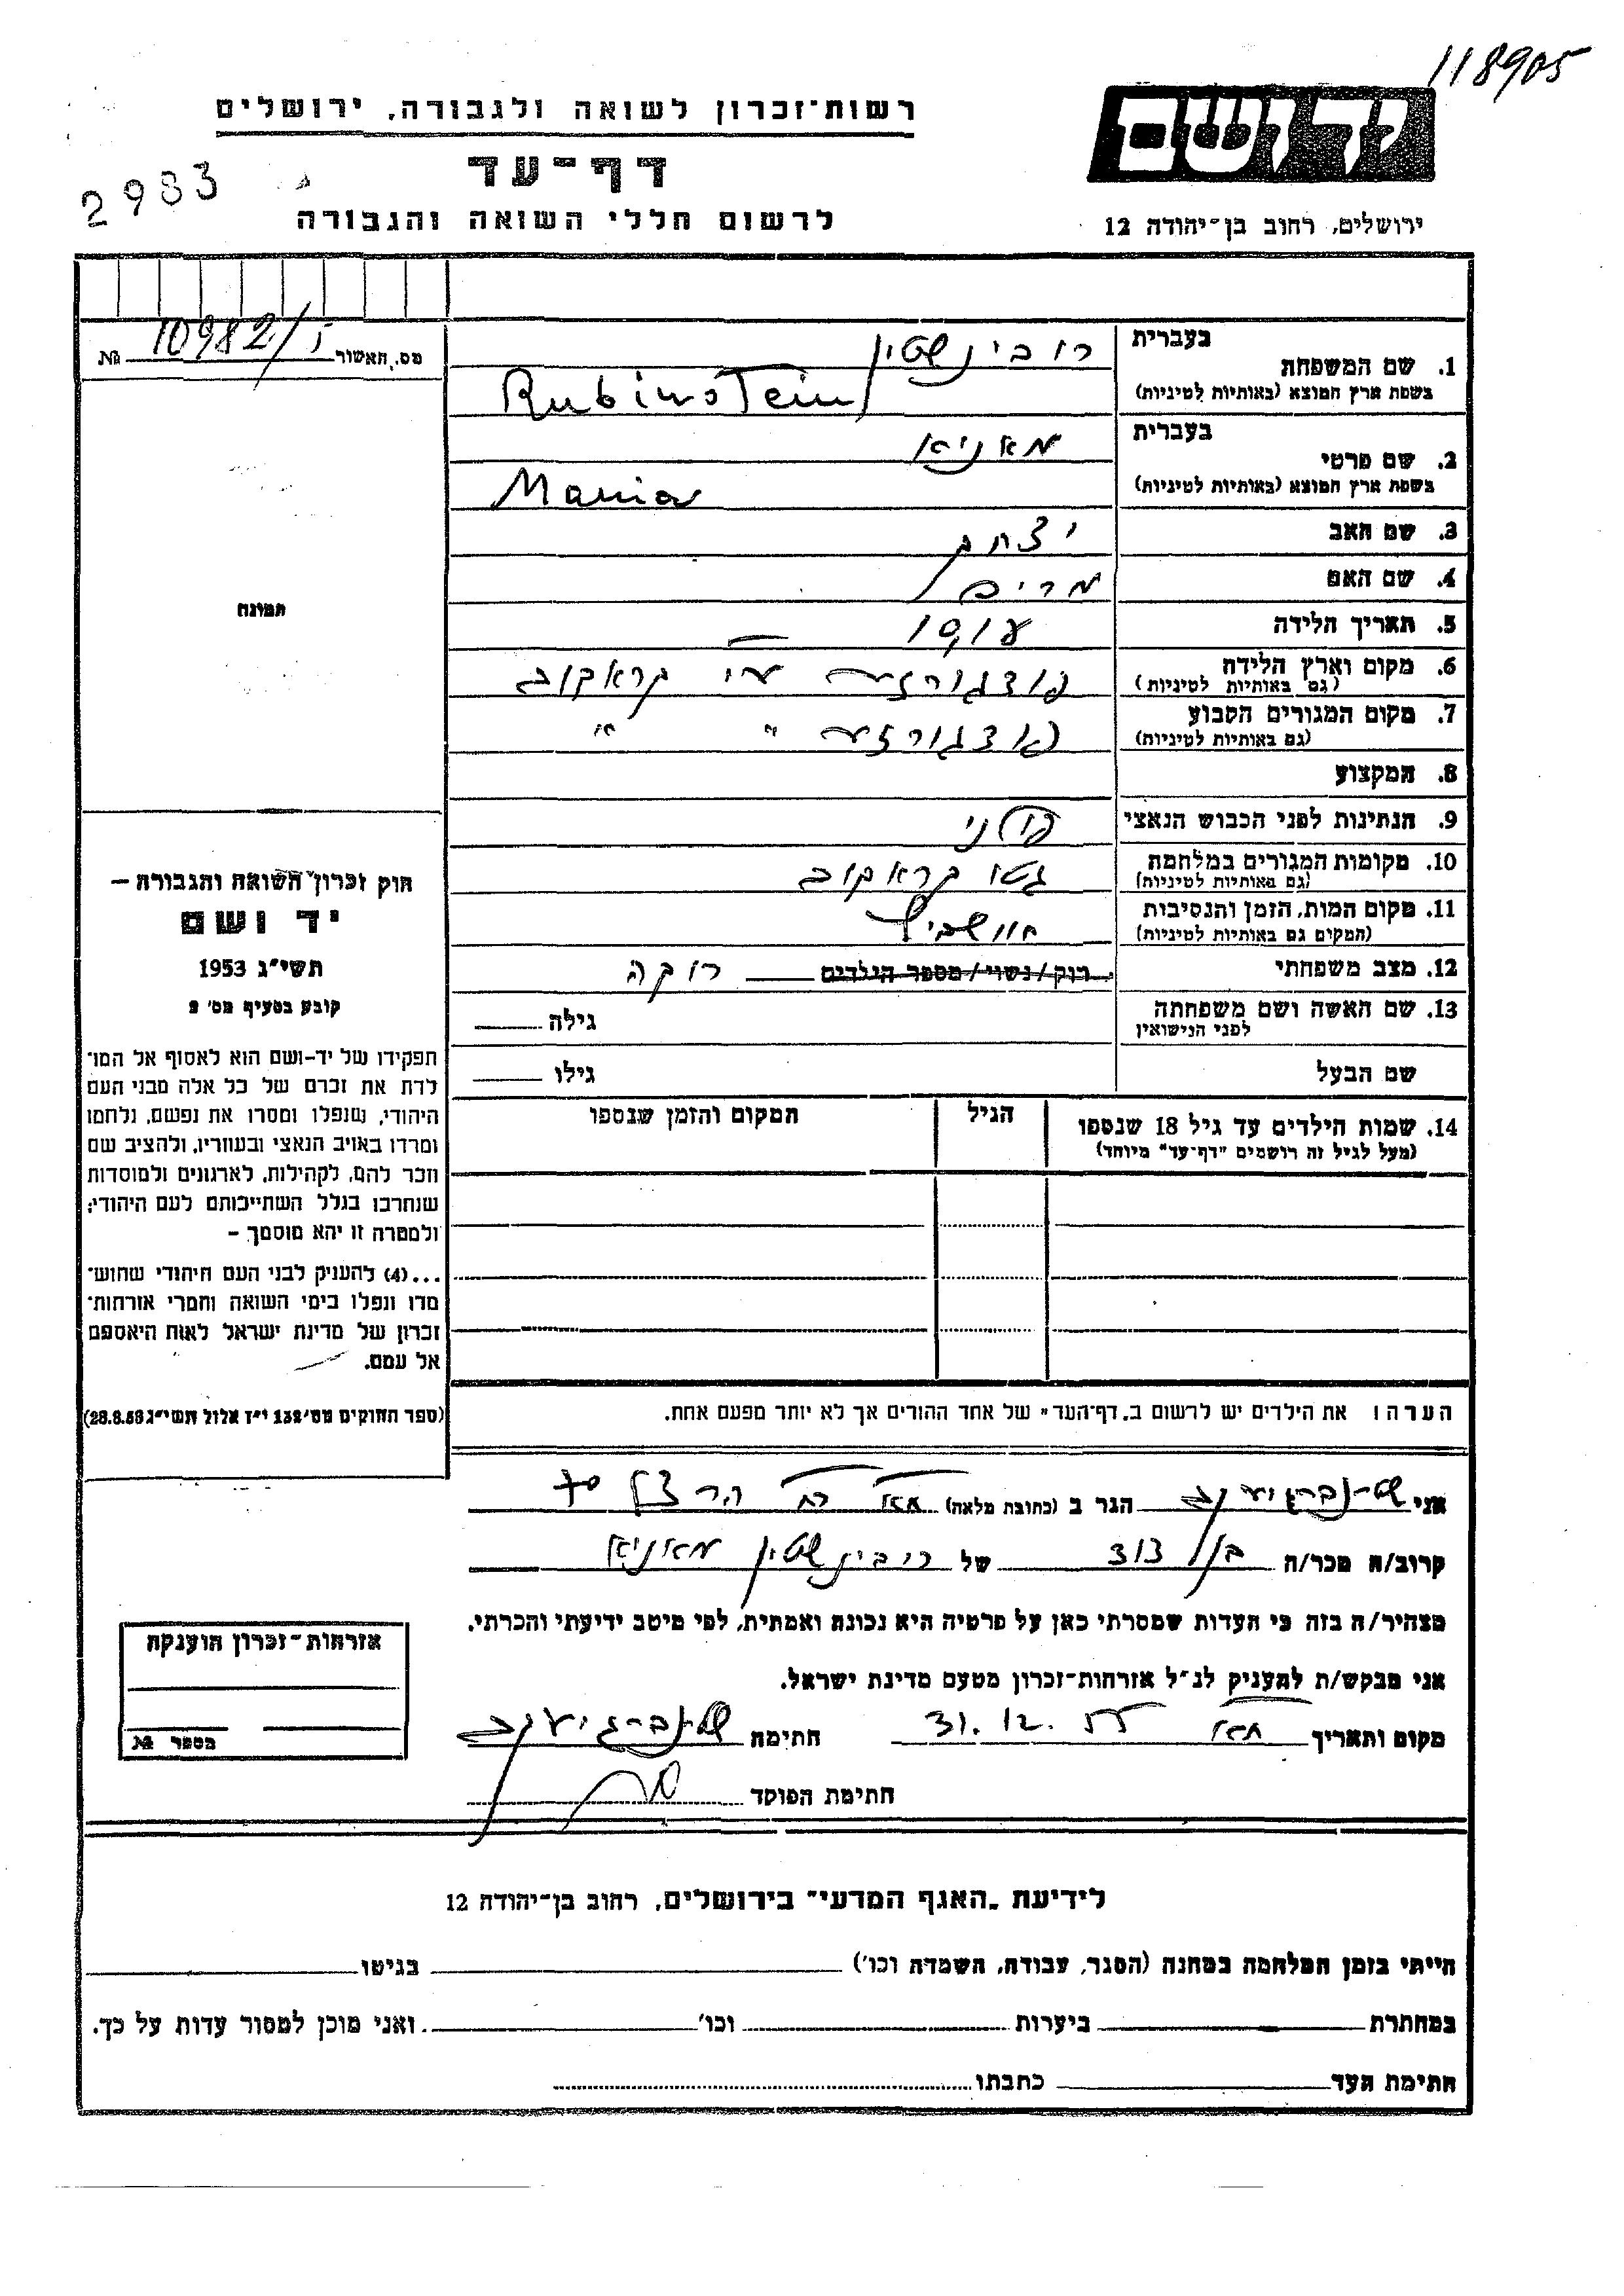 118905
יד ושם
רשות־זכרון לשואה ולגבורה, ירושלים
דף־עד
2983
לרשום חללי השואה והגבורה
ירושלים, רחוב בן־יהודה 12
מס. האשור 10982/ № 
1. שם המשפחה בעברית רובינשטיין
בשפת ארץ המוצא (באותיות לטיניות) Rubinstein
2. שם פרטי בעברית מאניא
בשפת ארץ המוצא (באותיות לטיניות) Mania
3. שם האב יצחק
4. שם האם מרים
תמונה
5. תאריך הלידה
6. מקום וארץ הלידה פודגורזע ע״י קראקוב
(גם באותיות לטיניות)
7. מקום המגורים הקבוע פודגורזע " "
(גם באותיות לטיניות)
8. המקצוע
9. הנתינות לפני הכבוש הנאצי פולני
10. מקומות המגורים במלחמה גטו קראקוב
(גם באותיות לטיניות)
11. מקום המות, הזמן והנסיבות אושביץ
(המקום גם באותיות לטיניות)
12. מצב משפחתי רוק/נשוי/מספר הילדים רוקה
13. שם האשה ושם משפחתה גילה
לפני הנישואין
שם הבעל גילו
14. שמות הילדים עד גיל 18 שנספו הגיל המקום והזמן שנספו
(מעל לגיל זה רושמים "דף־עד" מיוחד)
חוק זכרון השואה והגבורה –
יד ושם
תשי"ג 1953
קובע בסעיף מס' 2
תפקידו של יד-ושם הוא לאסוף אל המו־
לדת את זכרם של כל אלה מבני העם
היהודי, שנפלו ומסרו את נפשם, נלחמו
ומרדו באויב הנאצי ובעוזריו, ולהציב שם
וזכר להם, לקהילות, לארגונים ולמוסדות
שנחרבו בגלל השתייכותם לעם היהודי;
ולמטרה זו יהא מוסמך –
...(4) להעניק לבני העם היהודי שהוש־
מדו ונפלו בימי השואה והמרי אזרחות־
זכרון של מדינת ישראל לאות היאספם
אל עמם.
(ספר החוקים מס' 132 י"ז אלול תשי"ג 28.8.53)
הערה: את הילדים יש לרשום ב„דף־העד" של אחד ההורים אך לא יותר מפעם אחת.
אני הגר ב (כתובת מלאה) רח' הרצל
קרוב/ה מכר/ה בן דוד של רובינשטיין מאניא
מצהיר/ה בזה כי העדות שמסרתי כאן על פרטיה היא נכונה ואמתית, לפי מיטב ידיעתי והכרתי.
אני מבקש/ת להעניק לנ"ל אזרחות־זכרון מטעם מדינת ישראל.
מקום ותאריך 31.12. חתימה
חתימת הפוקד
אזרחות־זכרון הוענקה
מספר №
לידיעת „האגף המדעי" בירושלים, רחוב בן־יהודה 12
הייתי בזמן המלחמה במחנה (הסגר, עבודה, השמדה וכו') בגיטו
במחתרת ביערות וכו' ואני מוכן למסור עדות על כך.
חתימת העד כתבתו